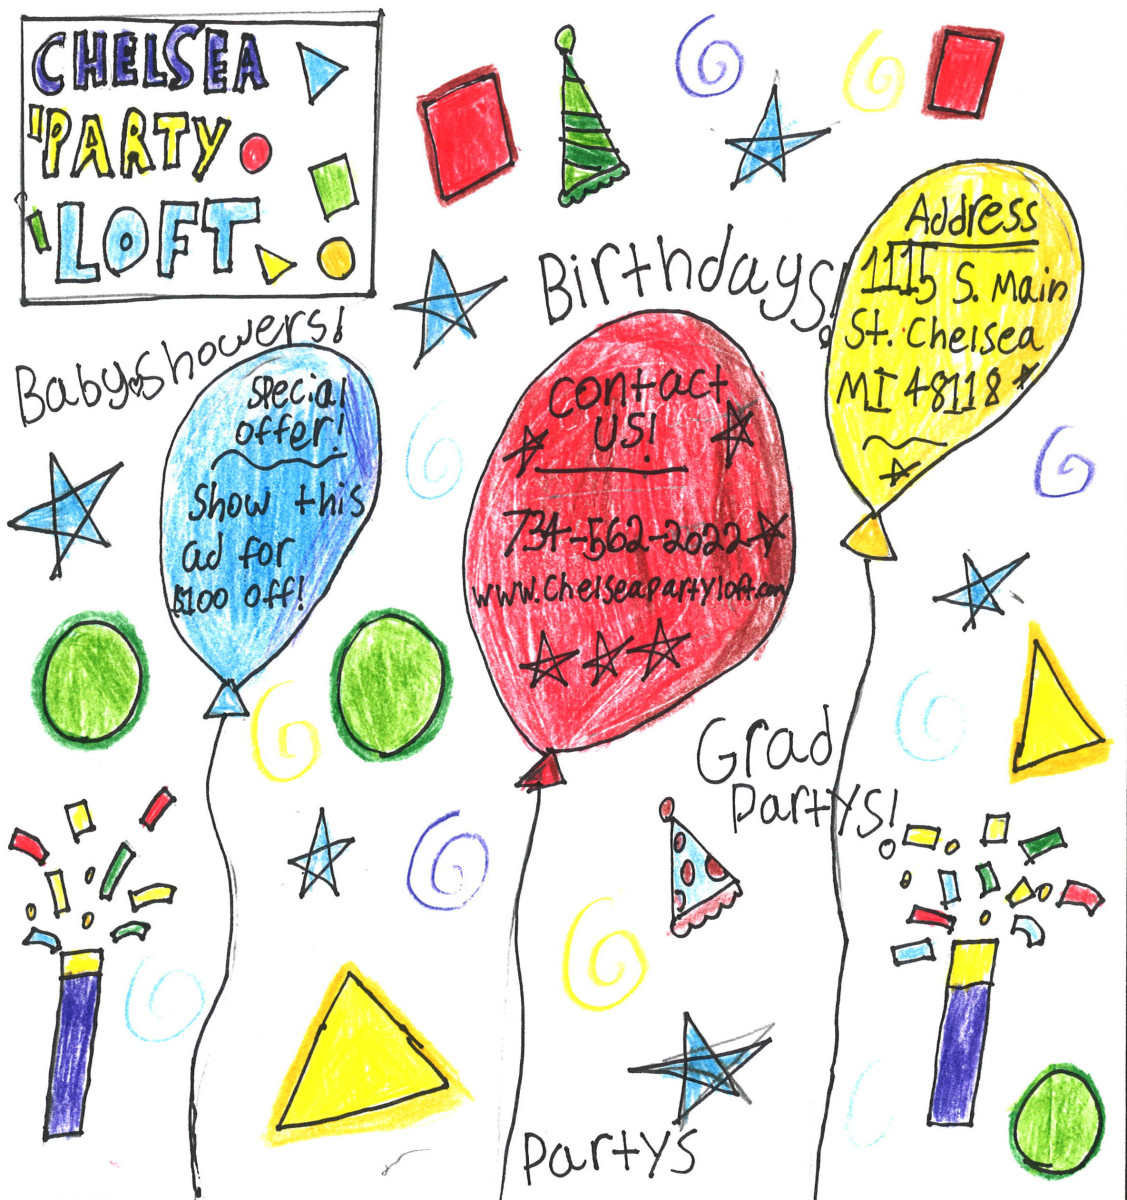 CHELSEA
PARTY
LOFT
Birthdays!
Address
1115 S. Main
St. Chelsea
MI 48118
Babyshowers!
special
offer!
Show this
ad for
$100 off!
contact
US!
734-562-2022
www.Chelseapartyloft.com
Grad
partys!
partys